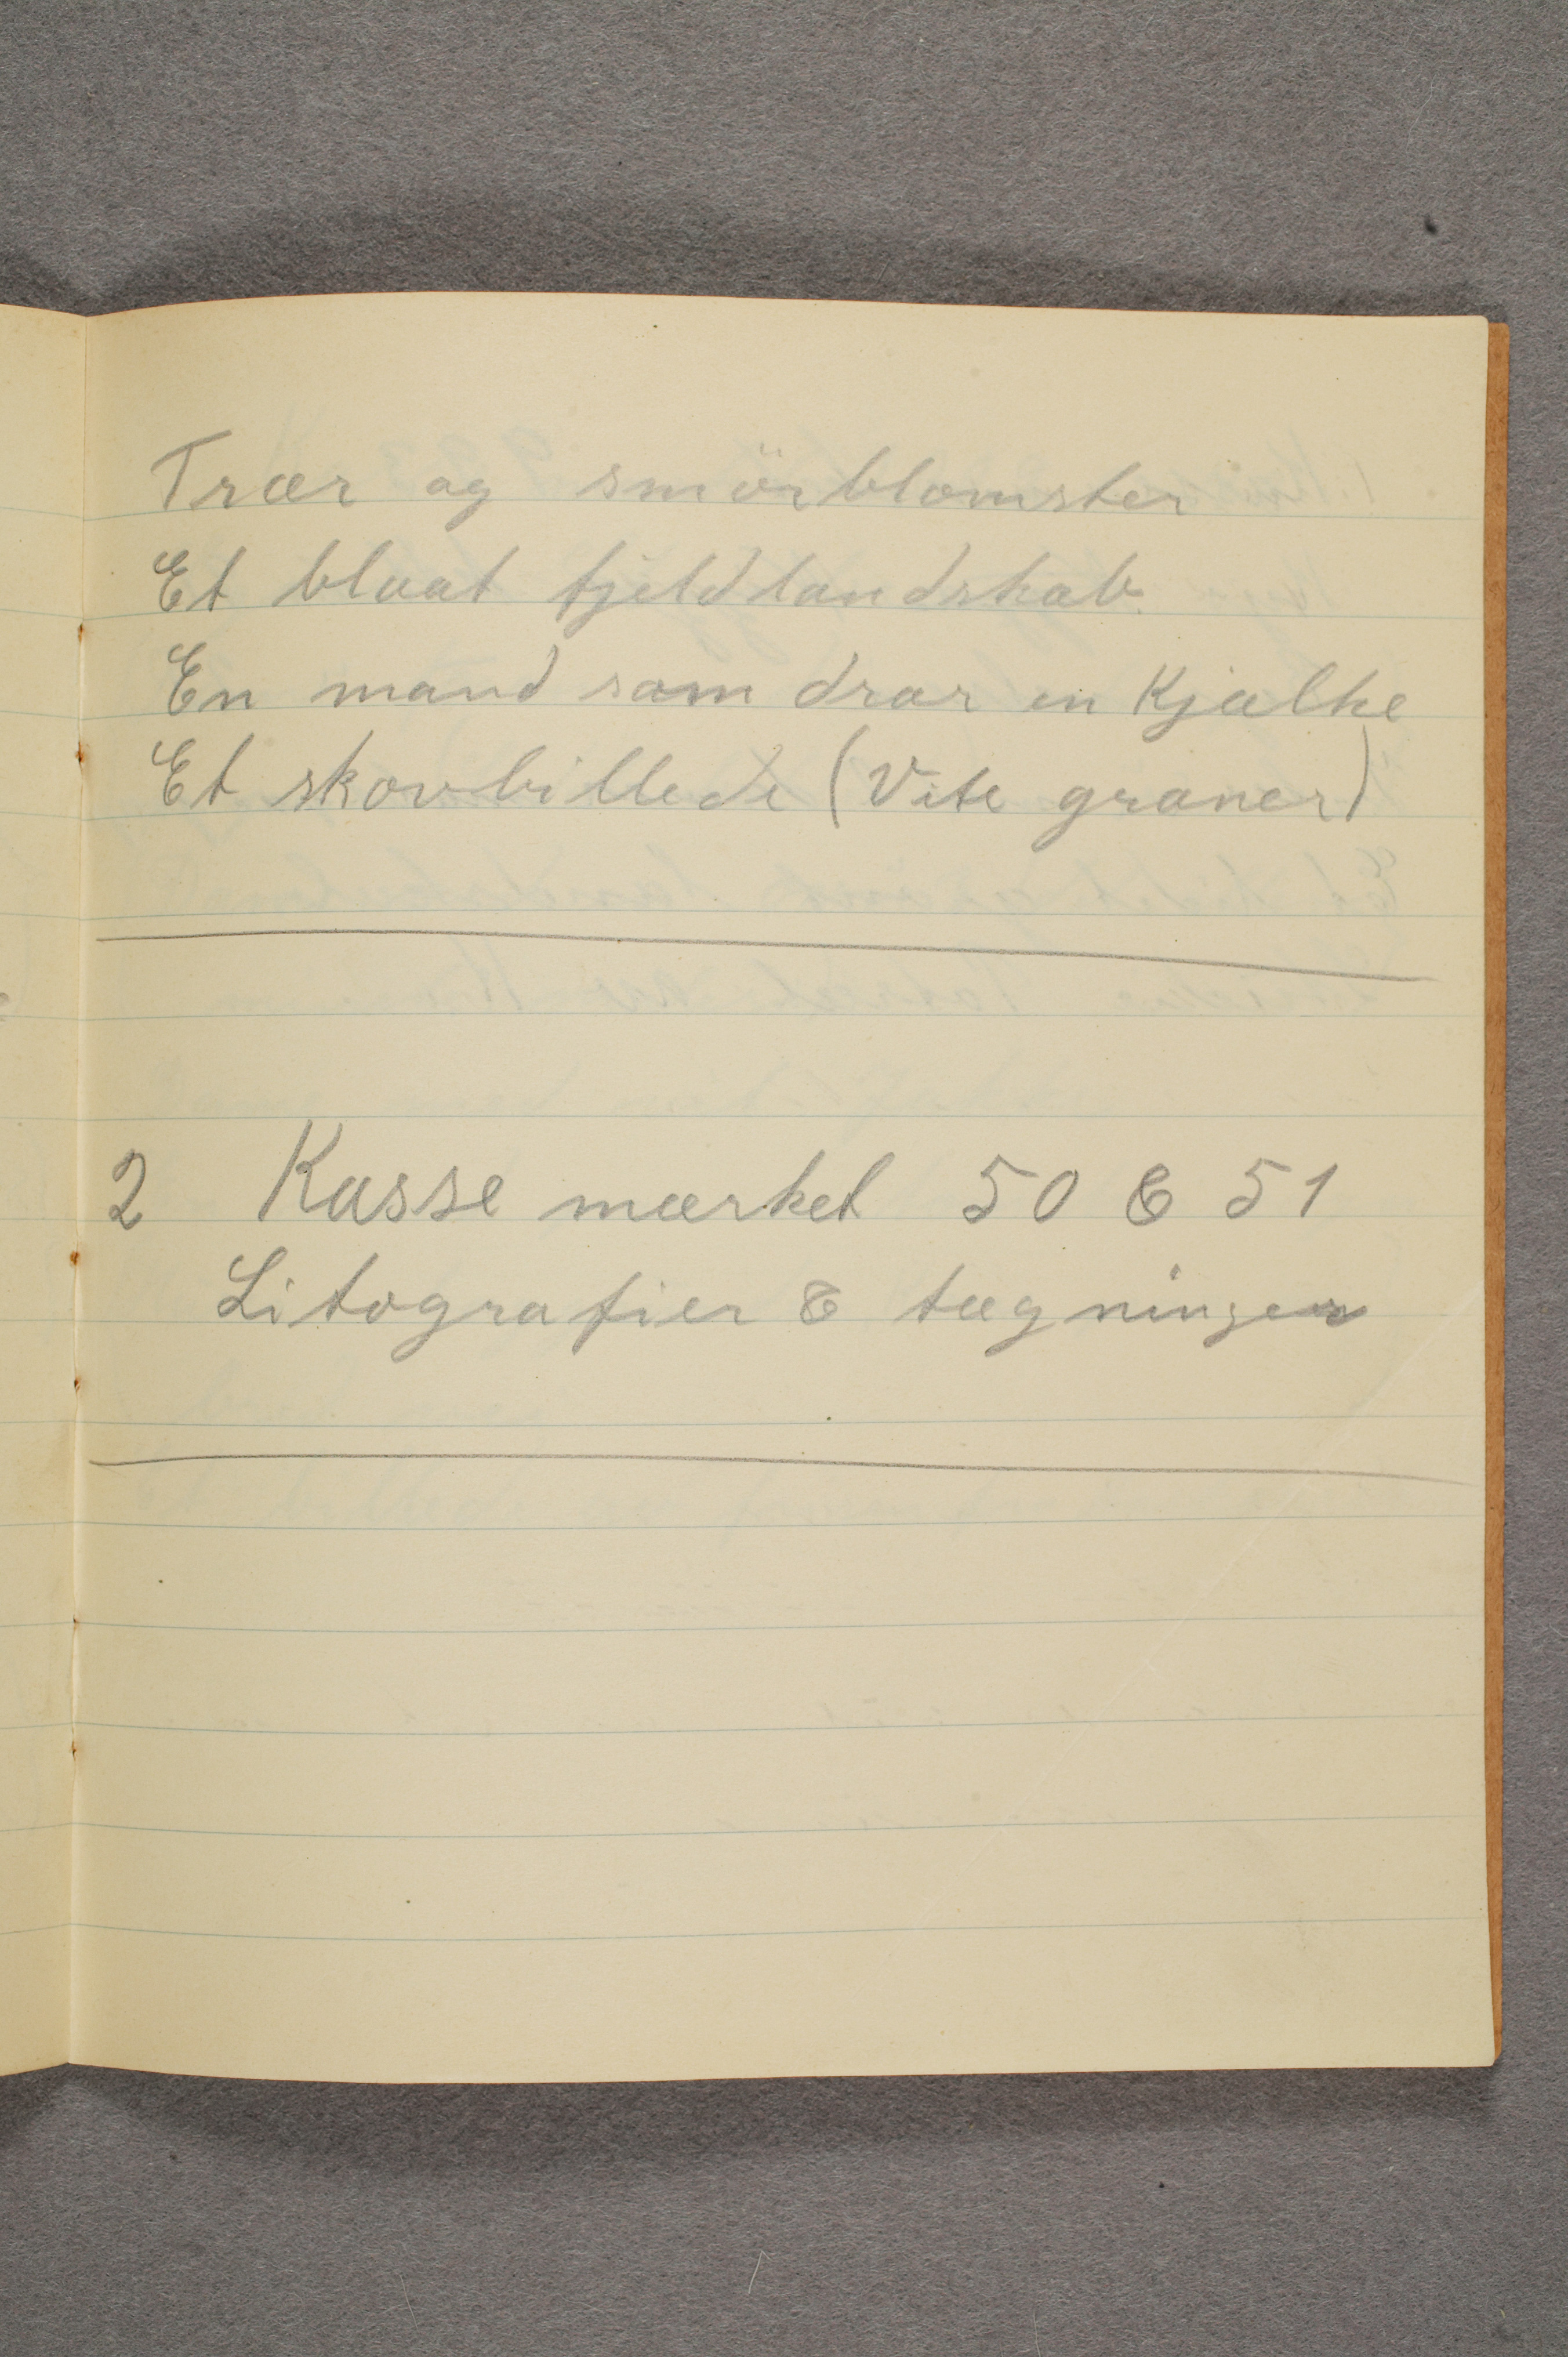 Trær og smörblomster
Et blaat fjeldlandskab
En mand som drar en Kjælke
Et skovbillede (Vite graner)
2 Kasse mærket 50 & 51
Litografier & tægninger